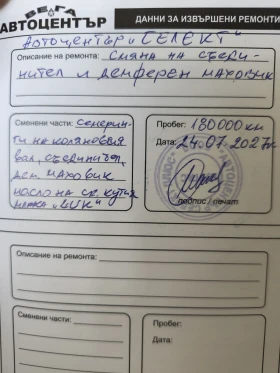 ВЕГА
АВТОЦЕНТЪР
ДАННИ ЗА ИЗВЪРШЕНИ РЕМОНТИ
Автоцентър „СЕЛЕКТ"
Описание на ремонта: Смяна на съеди-
нител и демферен маховик
Сменени части: Семерин-
ги на коляновия
вал, съединител,
дем. маховик
масло на ск. кутия
марка „LUK"
Пробег: 180000 км
Дата: 24.07.202 г.
подпис / печат
Описание на ремонта:
Сменени части:
Пробег:
Дата: